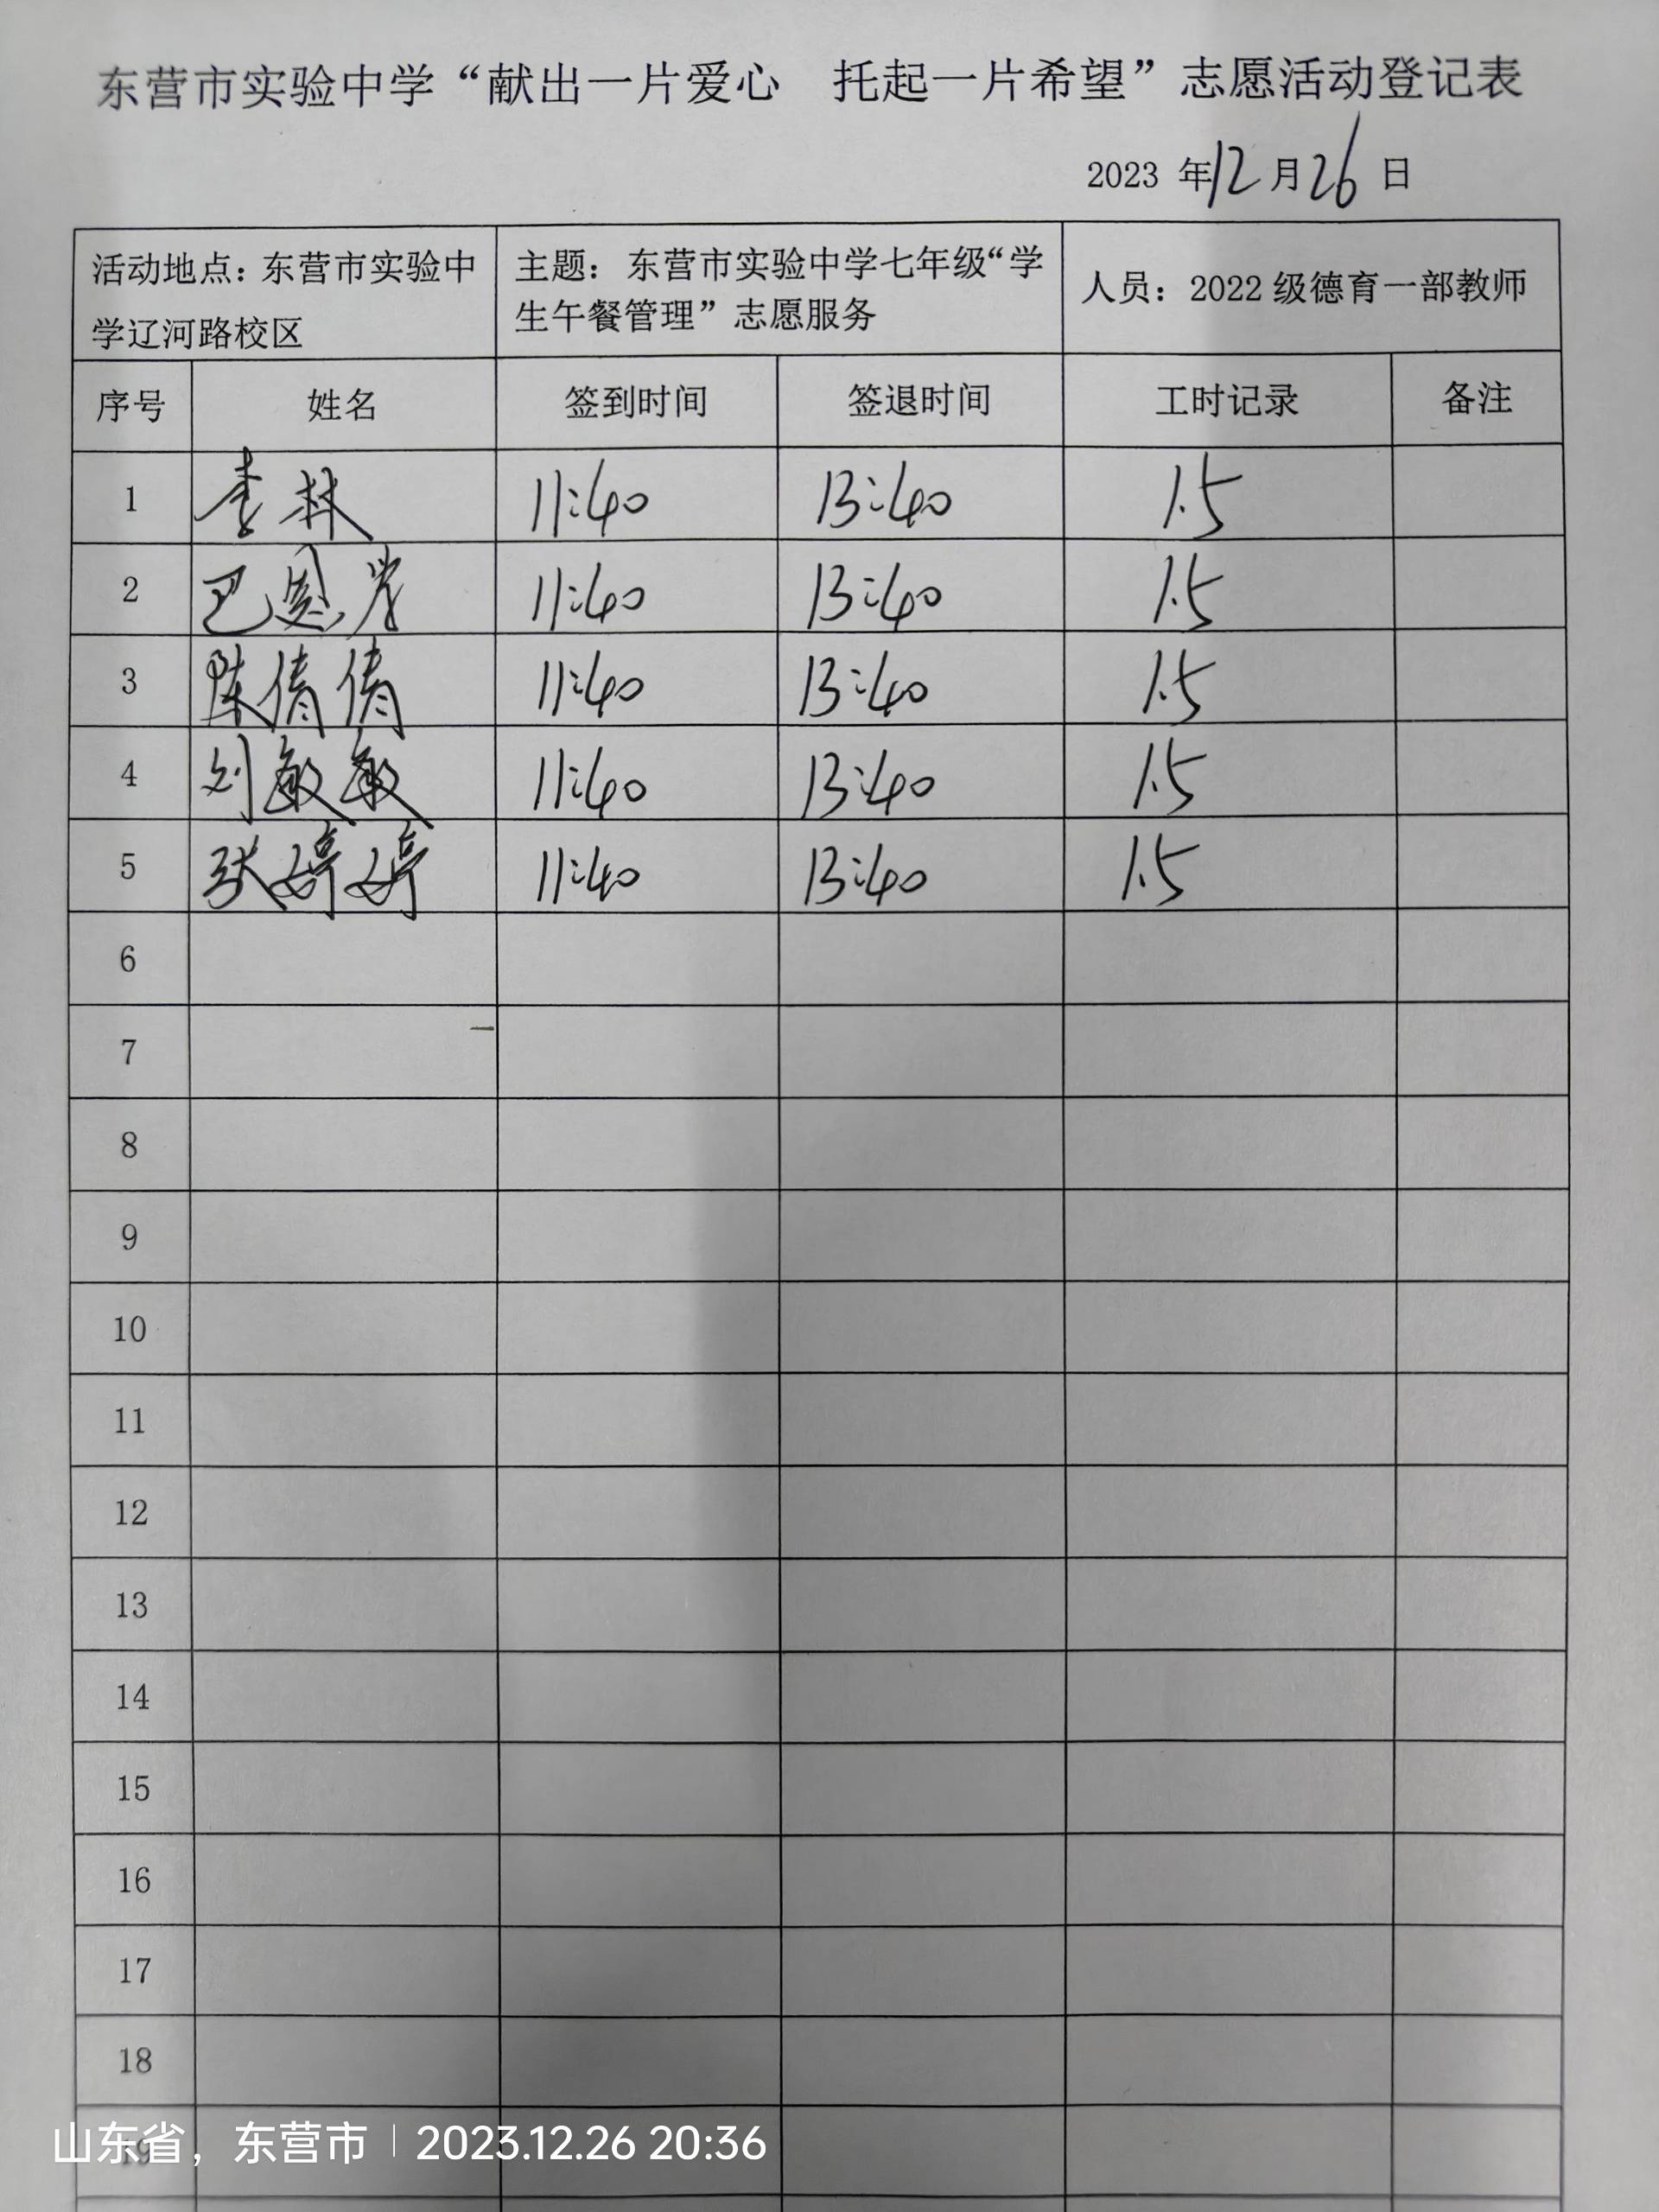 东营市实验中学“献出一片爱心 托起一片希望”志愿活动登记表
2023 年12月26日
活动地点：东营市实验中学辽河路校区 主题：东营市实验中学七年级“学生午餐管理”志愿服务 人员：2022级德育一部教师
序号 姓名 签到时间 签退时间 工时记录 备注
1 李林 11:40 13:40 1.5
2 巴恩 11:40 13:40 1.5
3 陈倩倩 11:40 13:40 1.5
4 刘敏敏 11:40 13:40 1.5
5 张婷婷 11:40 13:40 1.5
6
7
8
9
10
11
12
13
14
15
16
17
18
19
山东省，东营市 | 2023.12.26 20:36